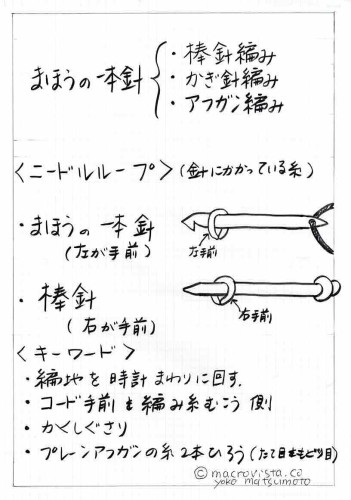 まほうの一本針
・棒針編み
・かぎ針編み
・アフガン編み
<ニードルループ>(針にかかっている糸)
・まほうの一本針
(左が手前)
左手前
・棒針
(右が手前)
右手前
<キーワード>
・編地を時計まわりに回す。
・コード手前も編み糸むこう側
・かくしぐさり
・プレーンアフガンの糸2本ひろう(たて目ももどり目)
© macrovista.co
yoko matsumoto